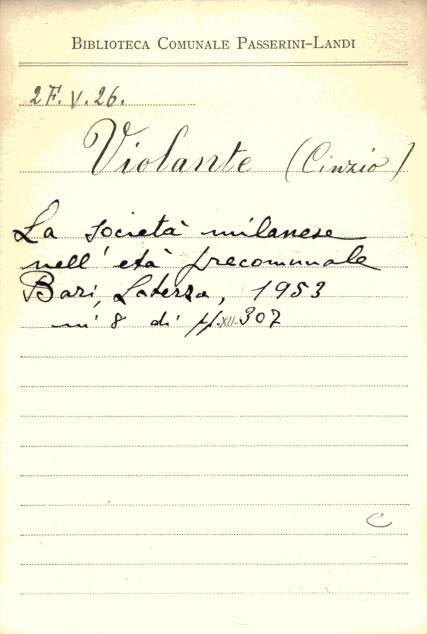 BIBLIOTECA COMUNALE PASSERINI-LANDI
2F.V.26.
Violante (Cinzio)
La società milanese
nell'età precomunale
Bari, Laterza, 1953
in 8 di pp. XII-307
C